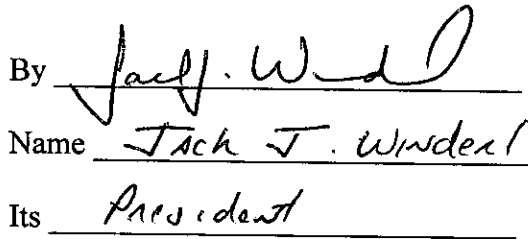 By Jack J. Winderl
Name Jack J. Winderl
Its President